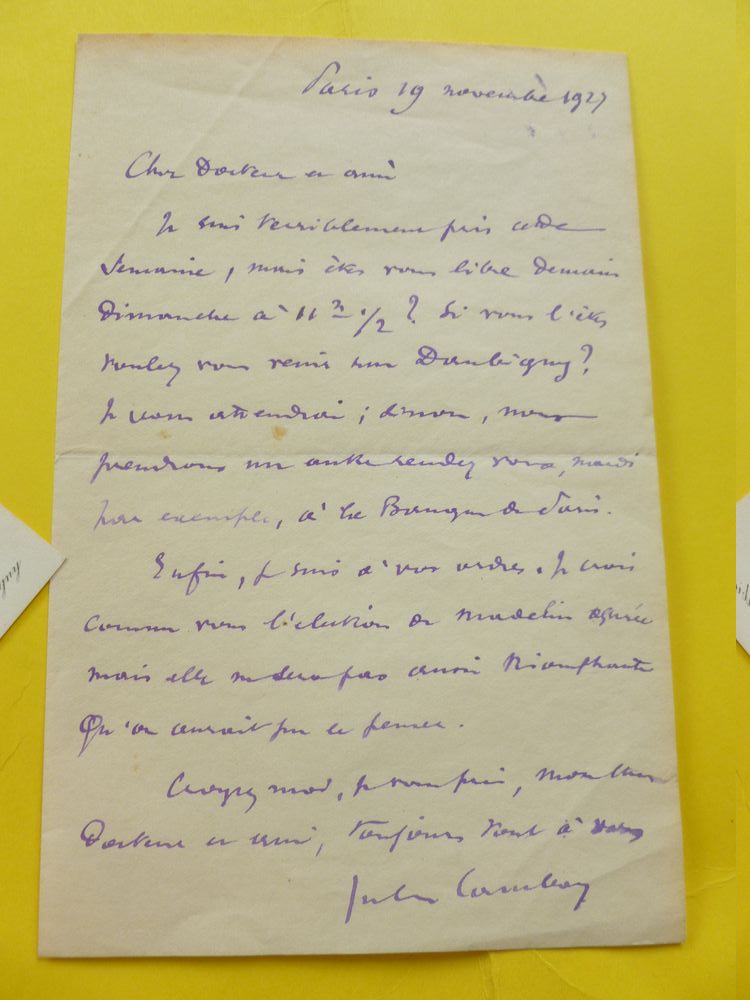 Paris 19 novembre 1927
Cher Docteur et ami
Je suis terriblement pris cette
semaine, mais êtes vous libre demain
Dimanche à 11 h 1/2 ? Si vous l'êtes
voulez vous venir rue Daubigny ?
Je vous attendrai ; sinon, nous
prendrons un autre rendez vous, mardi
par exemple, à la Banque de Paris.
Enfin, je suis à vos ordres. Je crois
comme vous l'élection de Madelin assurée
mais elle ne sera pas aussi triomphante
Qu'on aurait pu le penser.
Croyez moi, je vous prie, mon cher
Docteur et ami, toujours tout à vous
Jules Cambon